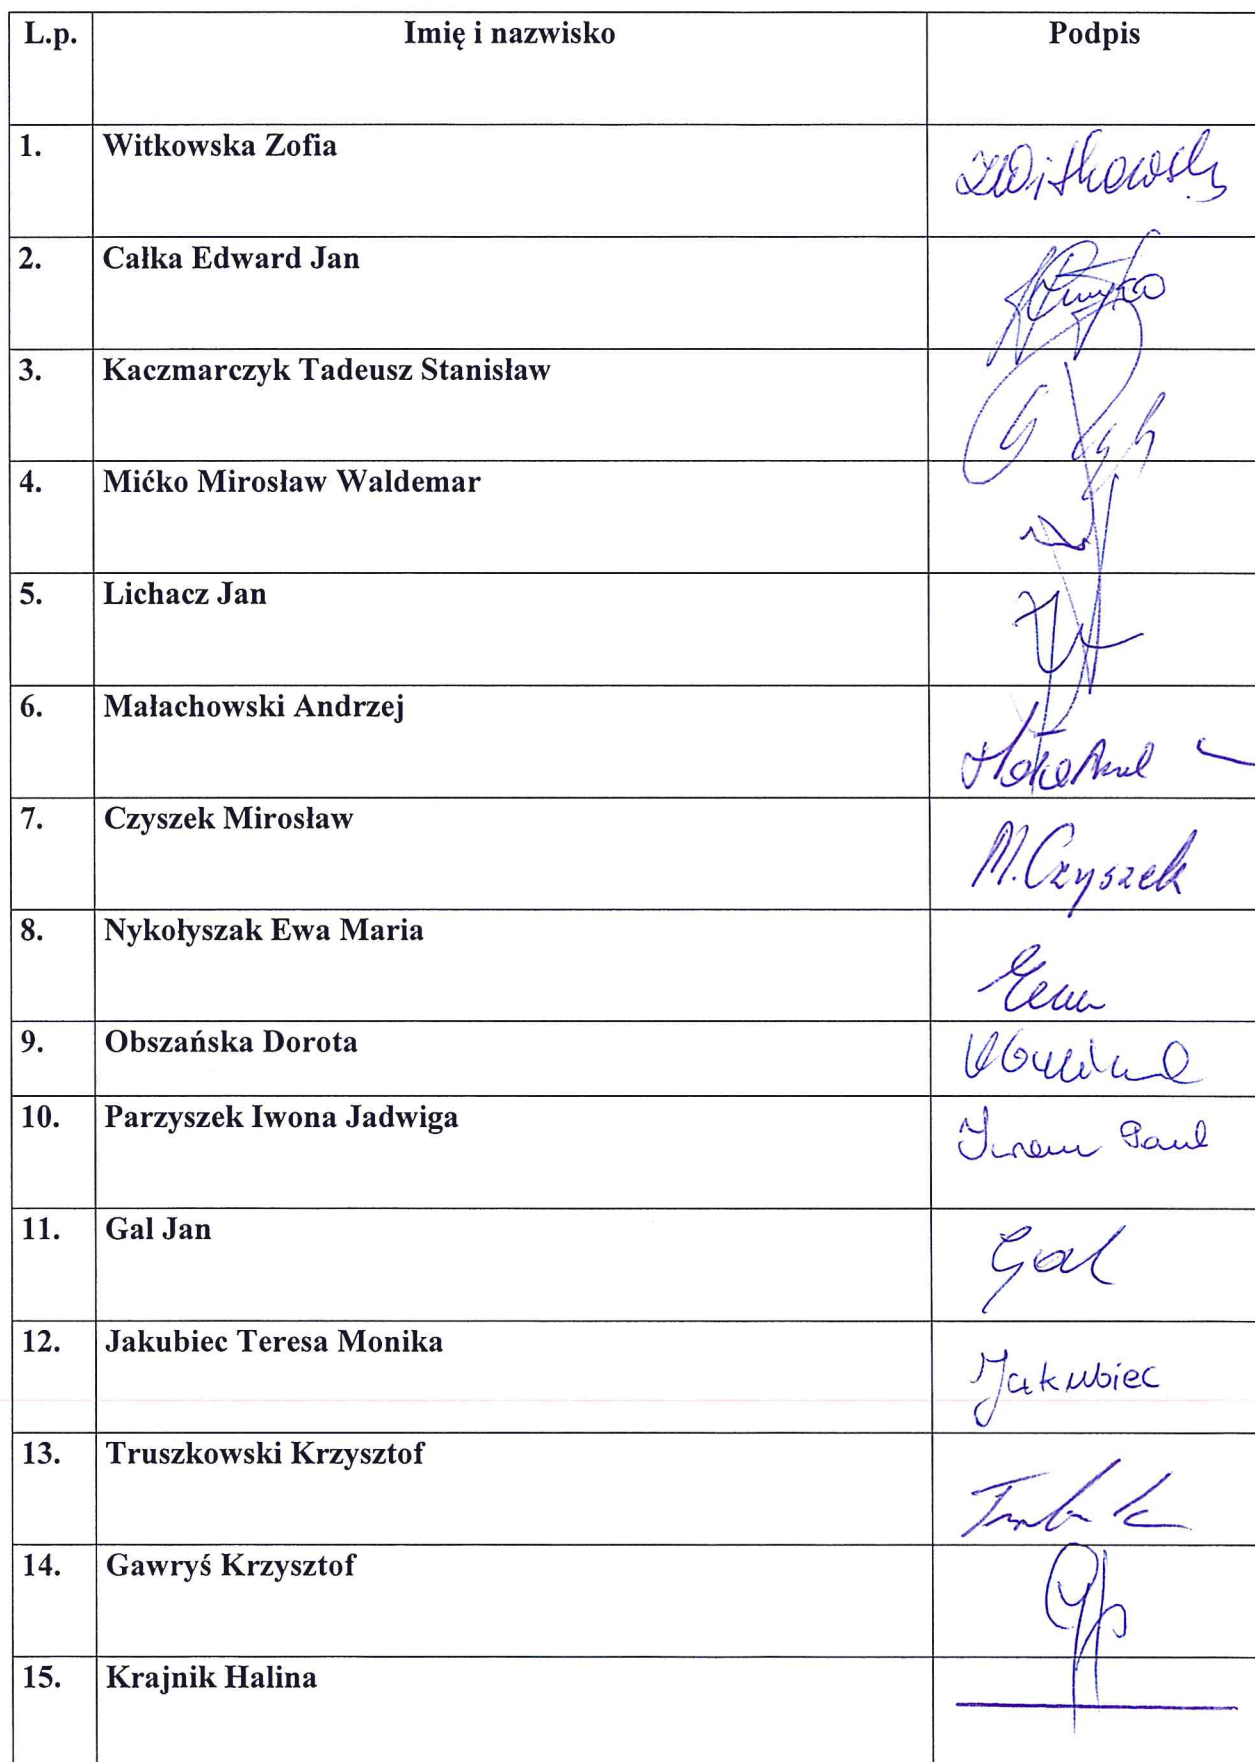 L.p. Imię i nazwisko Podpis
1. Witkowska Zofia ZWitkowska
2. Całka Edward Jan
3. Kaczmarczyk Tadeusz Stanisław
4. Mićko Mirosław Waldemar
5. Lichacz Jan
6. Małachowski Andrzej
7. Czyszek Mirosław M. Czyszek
8. Nykołyszak Ewa Maria
9. Obszańska Dorota
10. Parzyszek Iwona Jadwiga
11. Gal Jan Gal
12. Jakubiec Teresa Monika Jakubiec
13. Truszkowski Krzysztof
14. Gawryś Krzysztof
15. Krajnik Halina